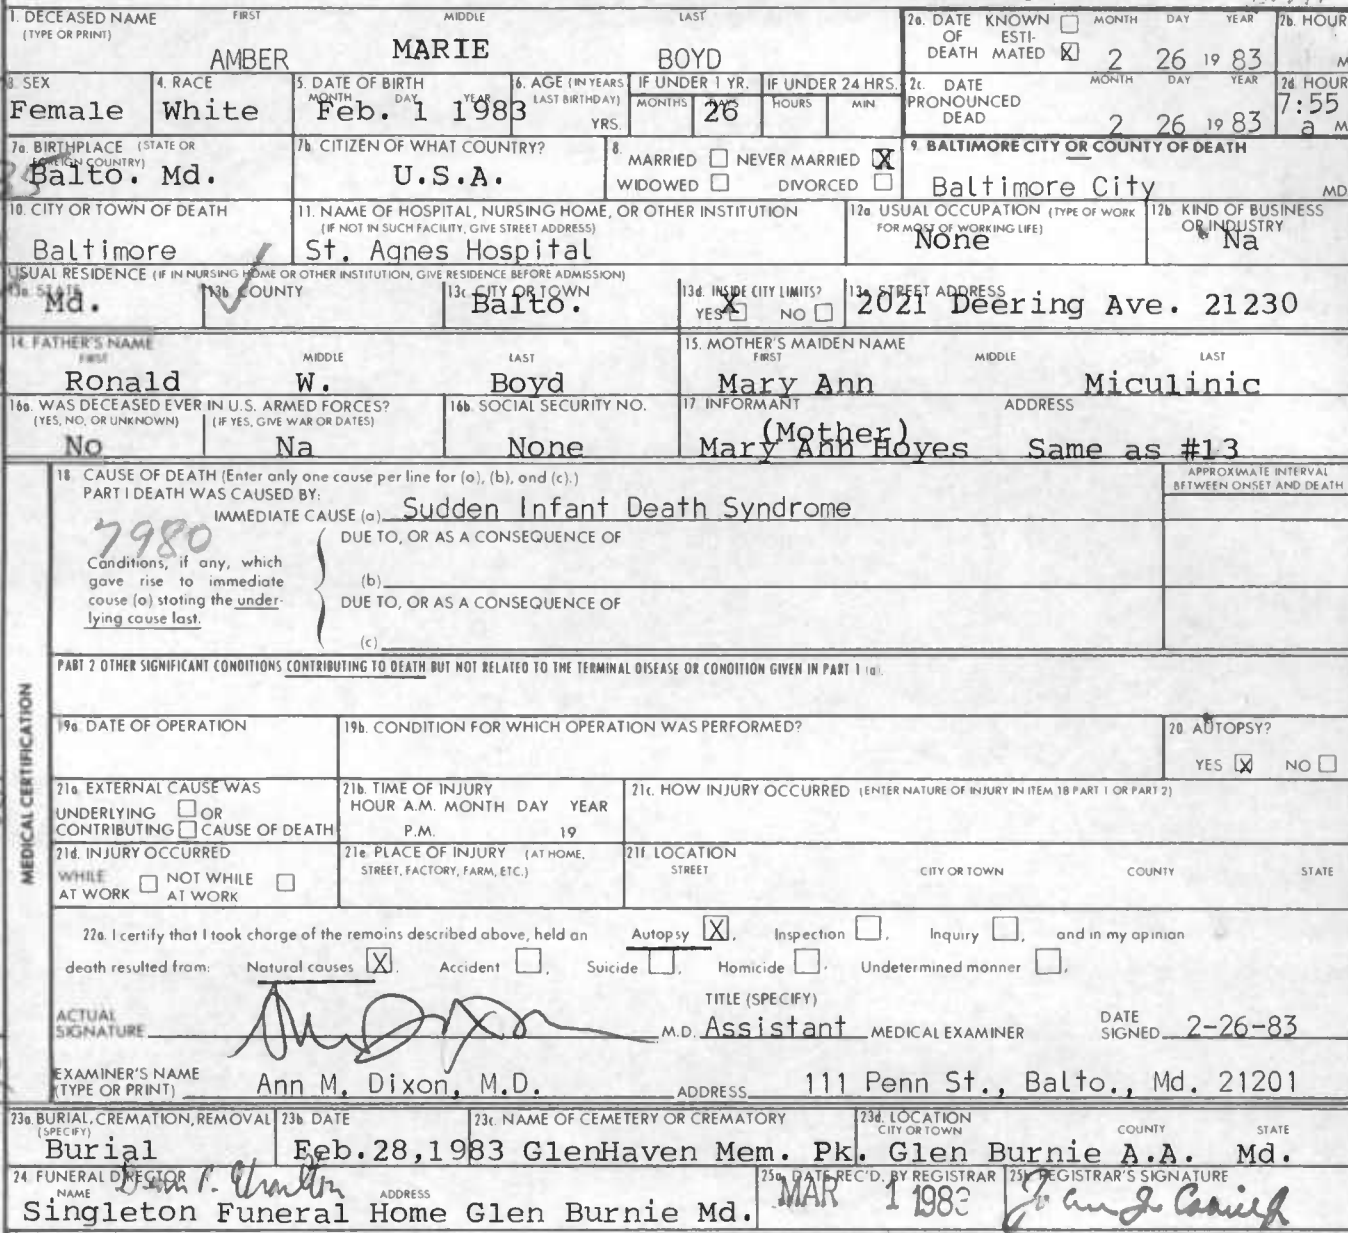 1. DECEASED NAME (TYPE OR PRINT) FIRST MIDDLE LAST
AMBER MARIE BOYD
2a. DATE OF DEATH KNOWN ☐ ESTIMATED ☒ MONTH DAY YEAR
2 26 19 83
2b. HOUR M
3. SEX
Female
4. RACE
White
5. DATE OF BIRTH MONTH DAY YEAR
Feb. 1 1983
6. AGE (IN YEARS LAST BIRTHDAY) YRS.
IF UNDER 1 YR. MONTHS DAYS
26
IF UNDER 24 HRS. HOURS MIN
2c. DATE PRONOUNCED DEAD MONTH DAY YEAR
2 26 19 83
2d HOUR
7:55 a M
7a. BIRTHPLACE (STATE OR FOREIGN COUNTRY)
Balto. Md.
7b. CITIZEN OF WHAT COUNTRY?
U.S.A.
8. MARRIED ☐ NEVER MARRIED ☒
WIDOWED ☐ DIVORCED ☐
9. BALTIMORE CITY OR COUNTY OF DEATH
Baltimore City MD
10. CITY OR TOWN OF DEATH
Baltimore
11. NAME OF HOSPITAL, NURSING HOME, OR OTHER INSTITUTION
(IF NOT IN SUCH FACILITY, GIVE STREET ADDRESS)
St. Agnes Hospital
12a USUAL OCCUPATION (TYPE OF WORK FOR MOST OF WORKING LIFE)
None
12b KIND OF BUSINESS OR INDUSTRY
Na
USUAL RESIDENCE (IF IN NURSING HOME OR OTHER INSTITUTION, GIVE RESIDENCE BEFORE ADMISSION)
13a. STATE
Md.
13b COUNTY
13c CITY OR TOWN
Balto.
13d. INSIDE CITY LIMITS?
YES ☒ NO ☐
13e STREET ADDRESS
2021 Deering Ave. 21230
14. FATHER'S NAME FIRST MIDDLE LAST
Ronald W. Boyd
15. MOTHER'S MAIDEN NAME FIRST MIDDLE LAST
Mary Ann Miculinic
16a. WAS DECEASED EVER IN U.S. ARMED FORCES?
(YES, NO, OR UNKNOWN) (IF YES, GIVE WAR OR DATES)
No Na
16b. SOCIAL SECURITY NO.
None
17 INFORMANT ADDRESS
(Mother)
Mary Ann Hoyes Same as #13
MEDICAL CERTIFICATION
18 CAUSE OF DEATH (Enter only one cause per line for (a), (b), and (c).)
APPROXIMATE INTERVAL BETWEEN ONSET AND DEATH
PART I DEATH WAS CAUSED BY:
IMMEDIATE CAUSE (a) Sudden Infant Death Syndrome
7980
DUE TO, OR AS A CONSEQUENCE OF
Conditions, if any, which
gave rise to immediate
cause (a) stating the under-
lying cause last.
(b)
DUE TO, OR AS A CONSEQUENCE OF
(c)
PART 2 OTHER SIGNIFICANT CONDITIONS CONTRIBUTING TO DEATH BUT NOT RELATED TO THE TERMINAL DISEASE OR CONDITION GIVEN IN PART 1 (a).
19a DATE OF OPERATION
19b. CONDITION FOR WHICH OPERATION WAS PERFORMED?
20 AUTOPSY?
YES ☒ NO ☐
21a EXTERNAL CAUSE WAS
UNDERLYING ☐ OR
CONTRIBUTING ☐ CAUSE OF DEATH
21b. TIME OF INJURY
HOUR A.M. MONTH DAY YEAR
P.M. 19
21c. HOW INJURY OCCURRED (ENTER NATURE OF INJURY IN ITEM 18 PART 1 OR PART 2)
21d. INJURY OCCURRED
WHILE AT WORK ☐ NOT WHILE AT WORK ☐
21e PLACE OF INJURY (AT HOME, STREET, FACTORY, FARM, ETC.)
21f. LOCATION
STREET CITY OR TOWN COUNTY STATE
22a. I certify that I took charge of the remains described above, held an Autopsy ☒, Inspection ☐, Inquiry ☐, and in my opinion
death resulted from: Natural causes ☒. Accident ☐, Suicide ☐, Homicide ☐. Undetermined manner ☐.
ACTUAL SIGNATURE M.D.
TITLE (SPECIFY)
Assistant MEDICAL EXAMINER
DATE SIGNED 2-26-83
EXAMINER'S NAME (TYPE OR PRINT) Ann M. Dixon, M.D. ADDRESS 111 Penn St., Balto., Md. 21201
23a. BURIAL, CREMATION, REMOVAL (SPECIFY)
Burial
23b DATE
Feb.28,1983
23c. NAME OF CEMETERY OR CREMATORY
GlenHaven Mem. Pk.
23d. LOCATION CITY OR TOWN COUNTY STATE
Glen Burnie A.A. Md.
24 FUNERAL DIRECTOR
NAME ADDRESS
Singleton Funeral Home Glen Burnie Md.
25a DATE REC'D. BY REGISTRAR
MAR 1 1983
25b REGISTRAR'S SIGNATURE